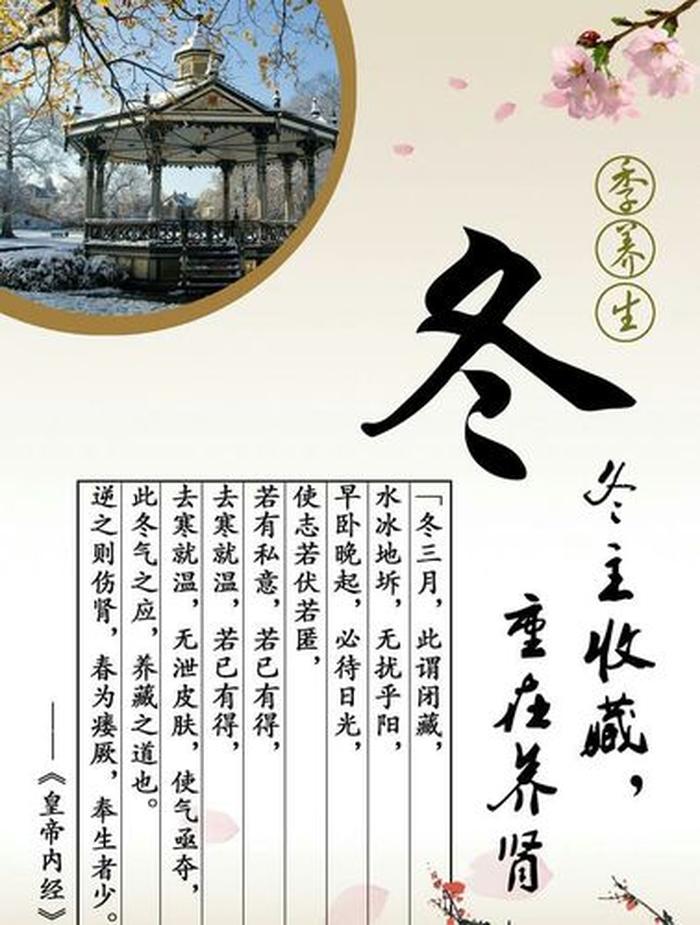 季养生
冬
冬主收藏，
重在养肾
「冬三月，此谓闭藏，
水冰地坼，无扰乎阳，
早卧晚起，必待日光，
使志若伏若匿，
若有私意，若已有得，
去寒就温，若已有得，
去寒就温，无泄皮肤，使气亟夺，
此冬气之应，养藏之道也。
逆之则伤肾，春为痿厥，奉生者少。
——《皇帝内经》